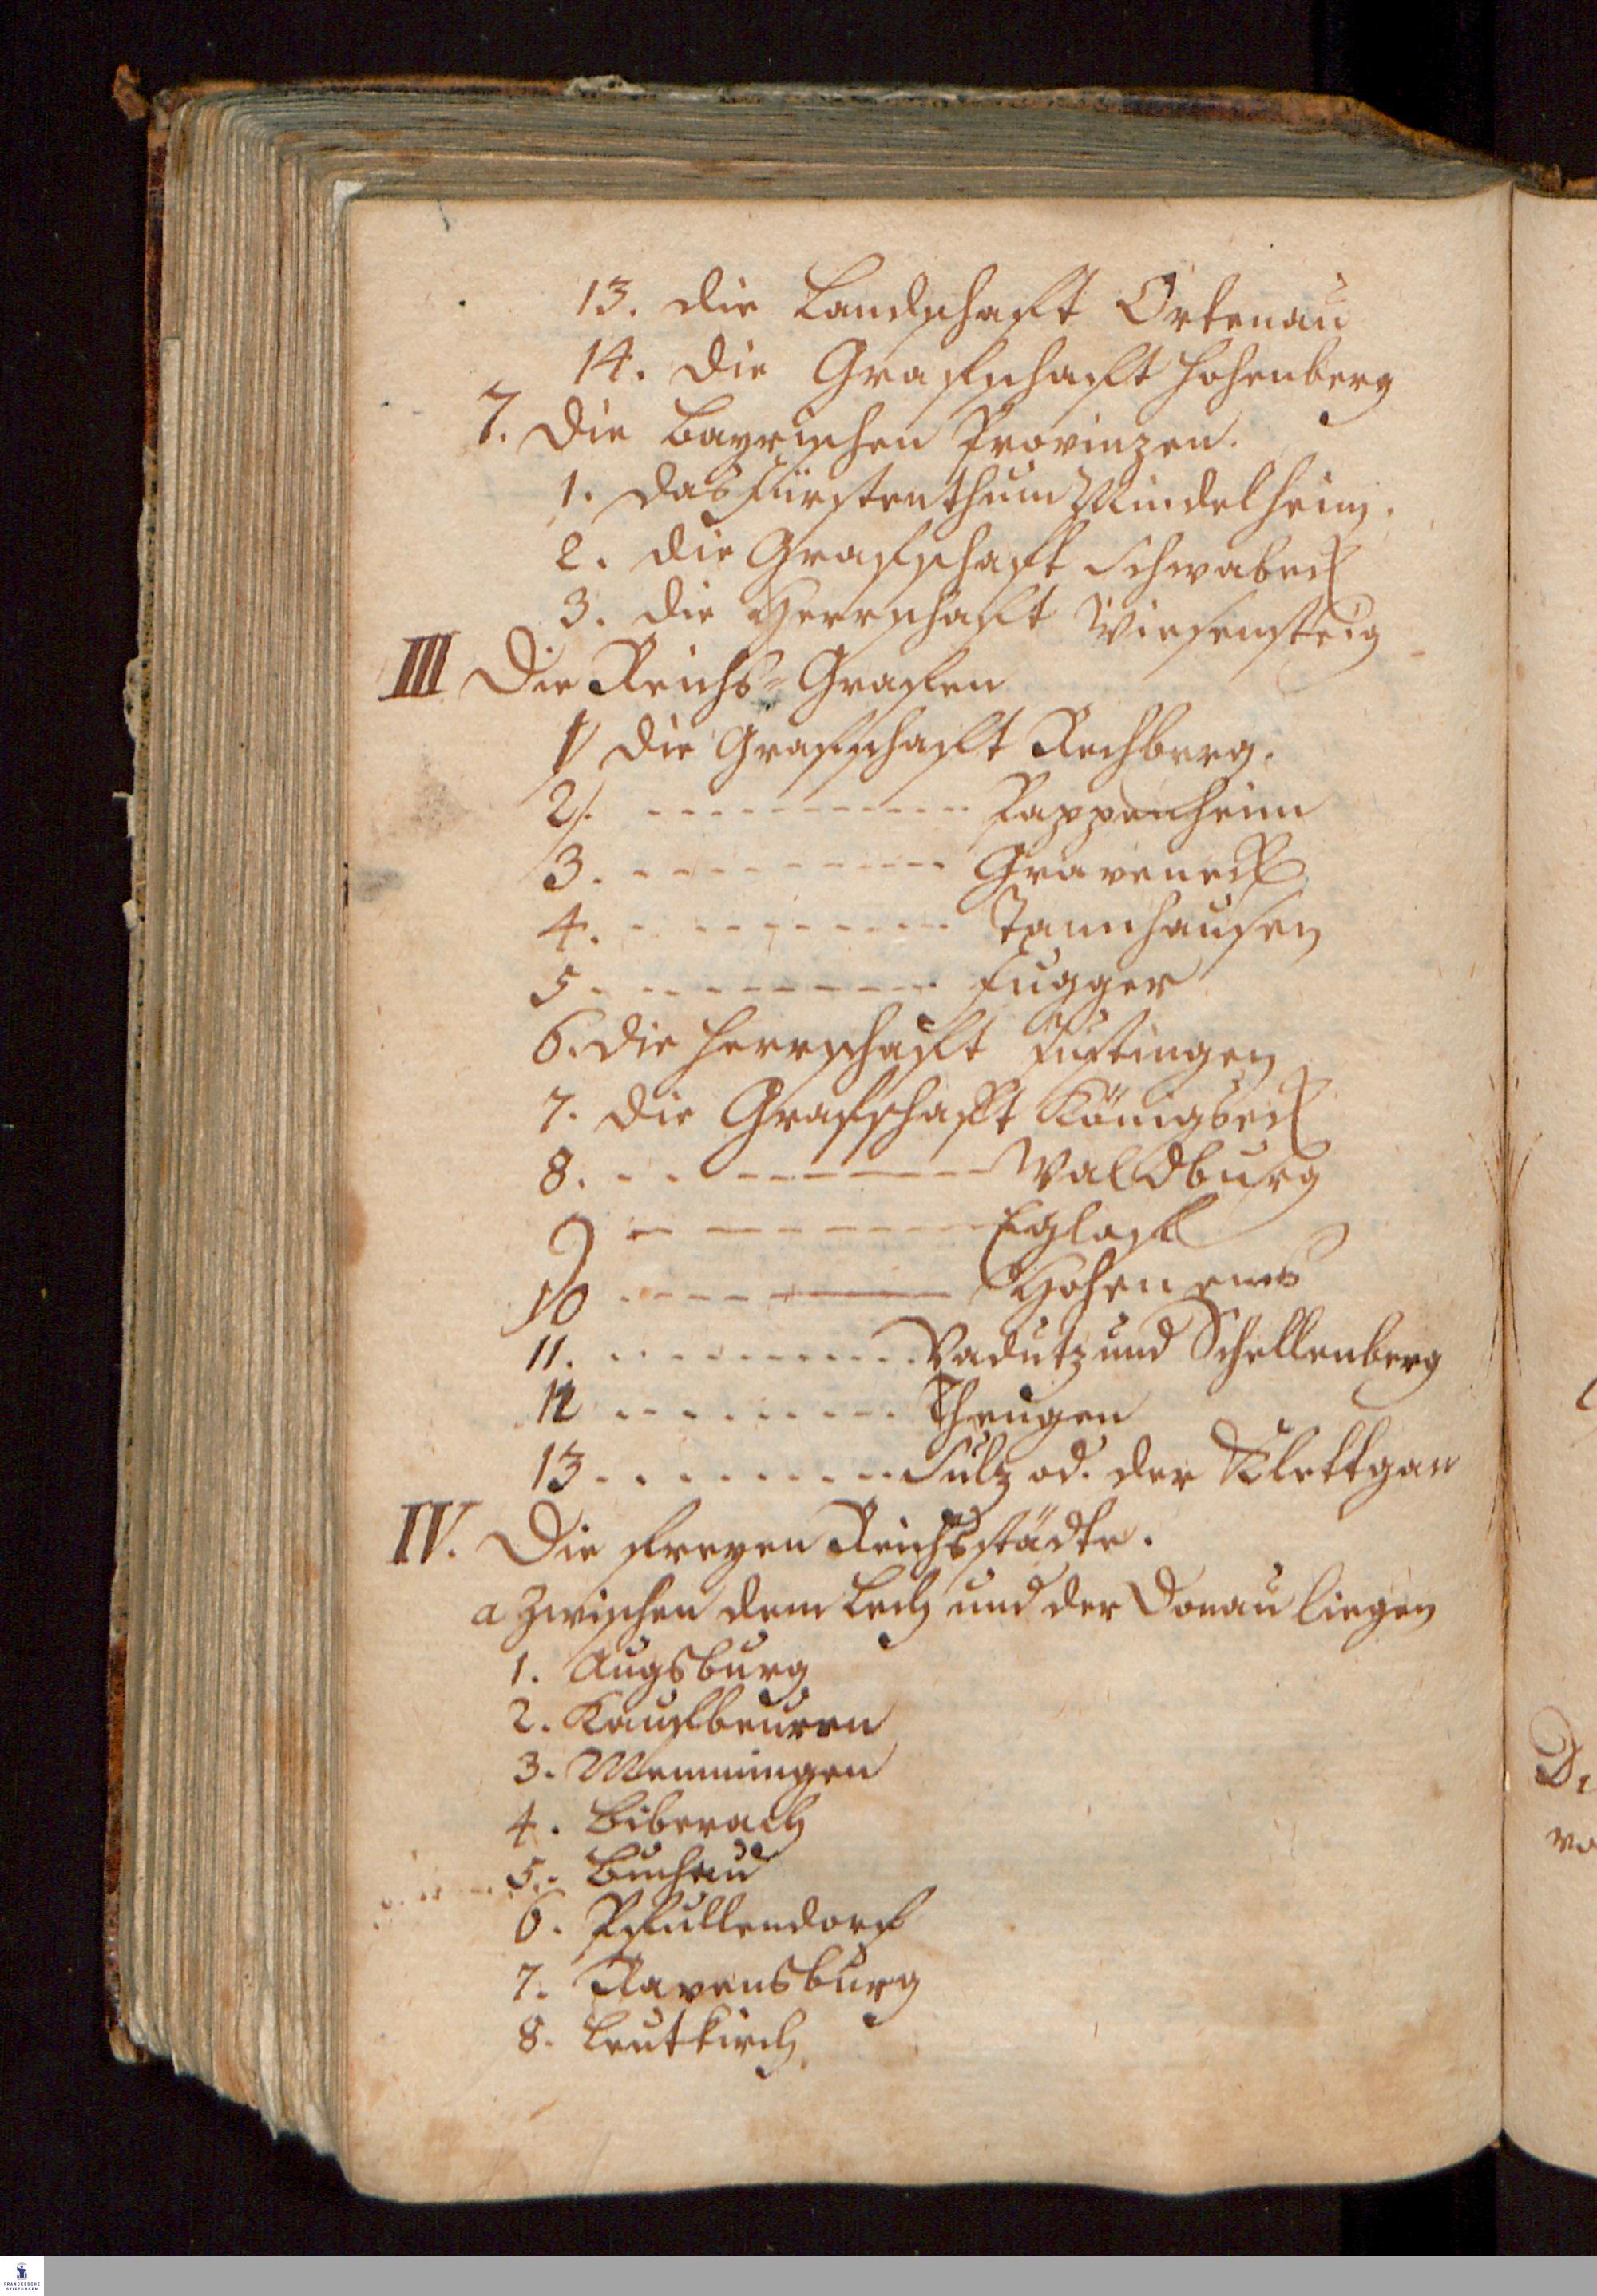 13. die Landschafft Ortenau
14. die Graffschafft Hohenberg
7. Die Bayrischen Provinzen.
1. das Fürstenthum Mindelheim.
2. die Graffschafft Schwabeck
3. die Herrschafft Wiesensteig
III Die Reichs-Graffen
1/ die Graffschafft Rechberg.
2/. - - - - - - - - - - - Pappenheim
3. - - - - - - - - - Graveneck
4. - - - - - - - - - Tannhausen
5 - - - - - - - - - Fugger
6. die Herrschafft Justingen
7. die Graffschafft Königseck
8. - - - - - - - - Waldburg
9 - - - - - - - Egloff
10 - - - - - - - Hohenems
11. - - - - - - - - - Vadutz und Schellenberg
12 - - - - - - - - Thengen
13 - - - - - - - - Sulz od. der Klettgau
IV. Die freyen Reichsstädte.
a Zwischen dem Lech und der Donau liegen
1. Augsburg
2. Kauffbeuren
3. Memmingen
4. Biberach
5. Buchau
6. Pfullendorf
7. Ravensburg
8. Leutkirch
FRANCKESCHE
STIFTUNGEN